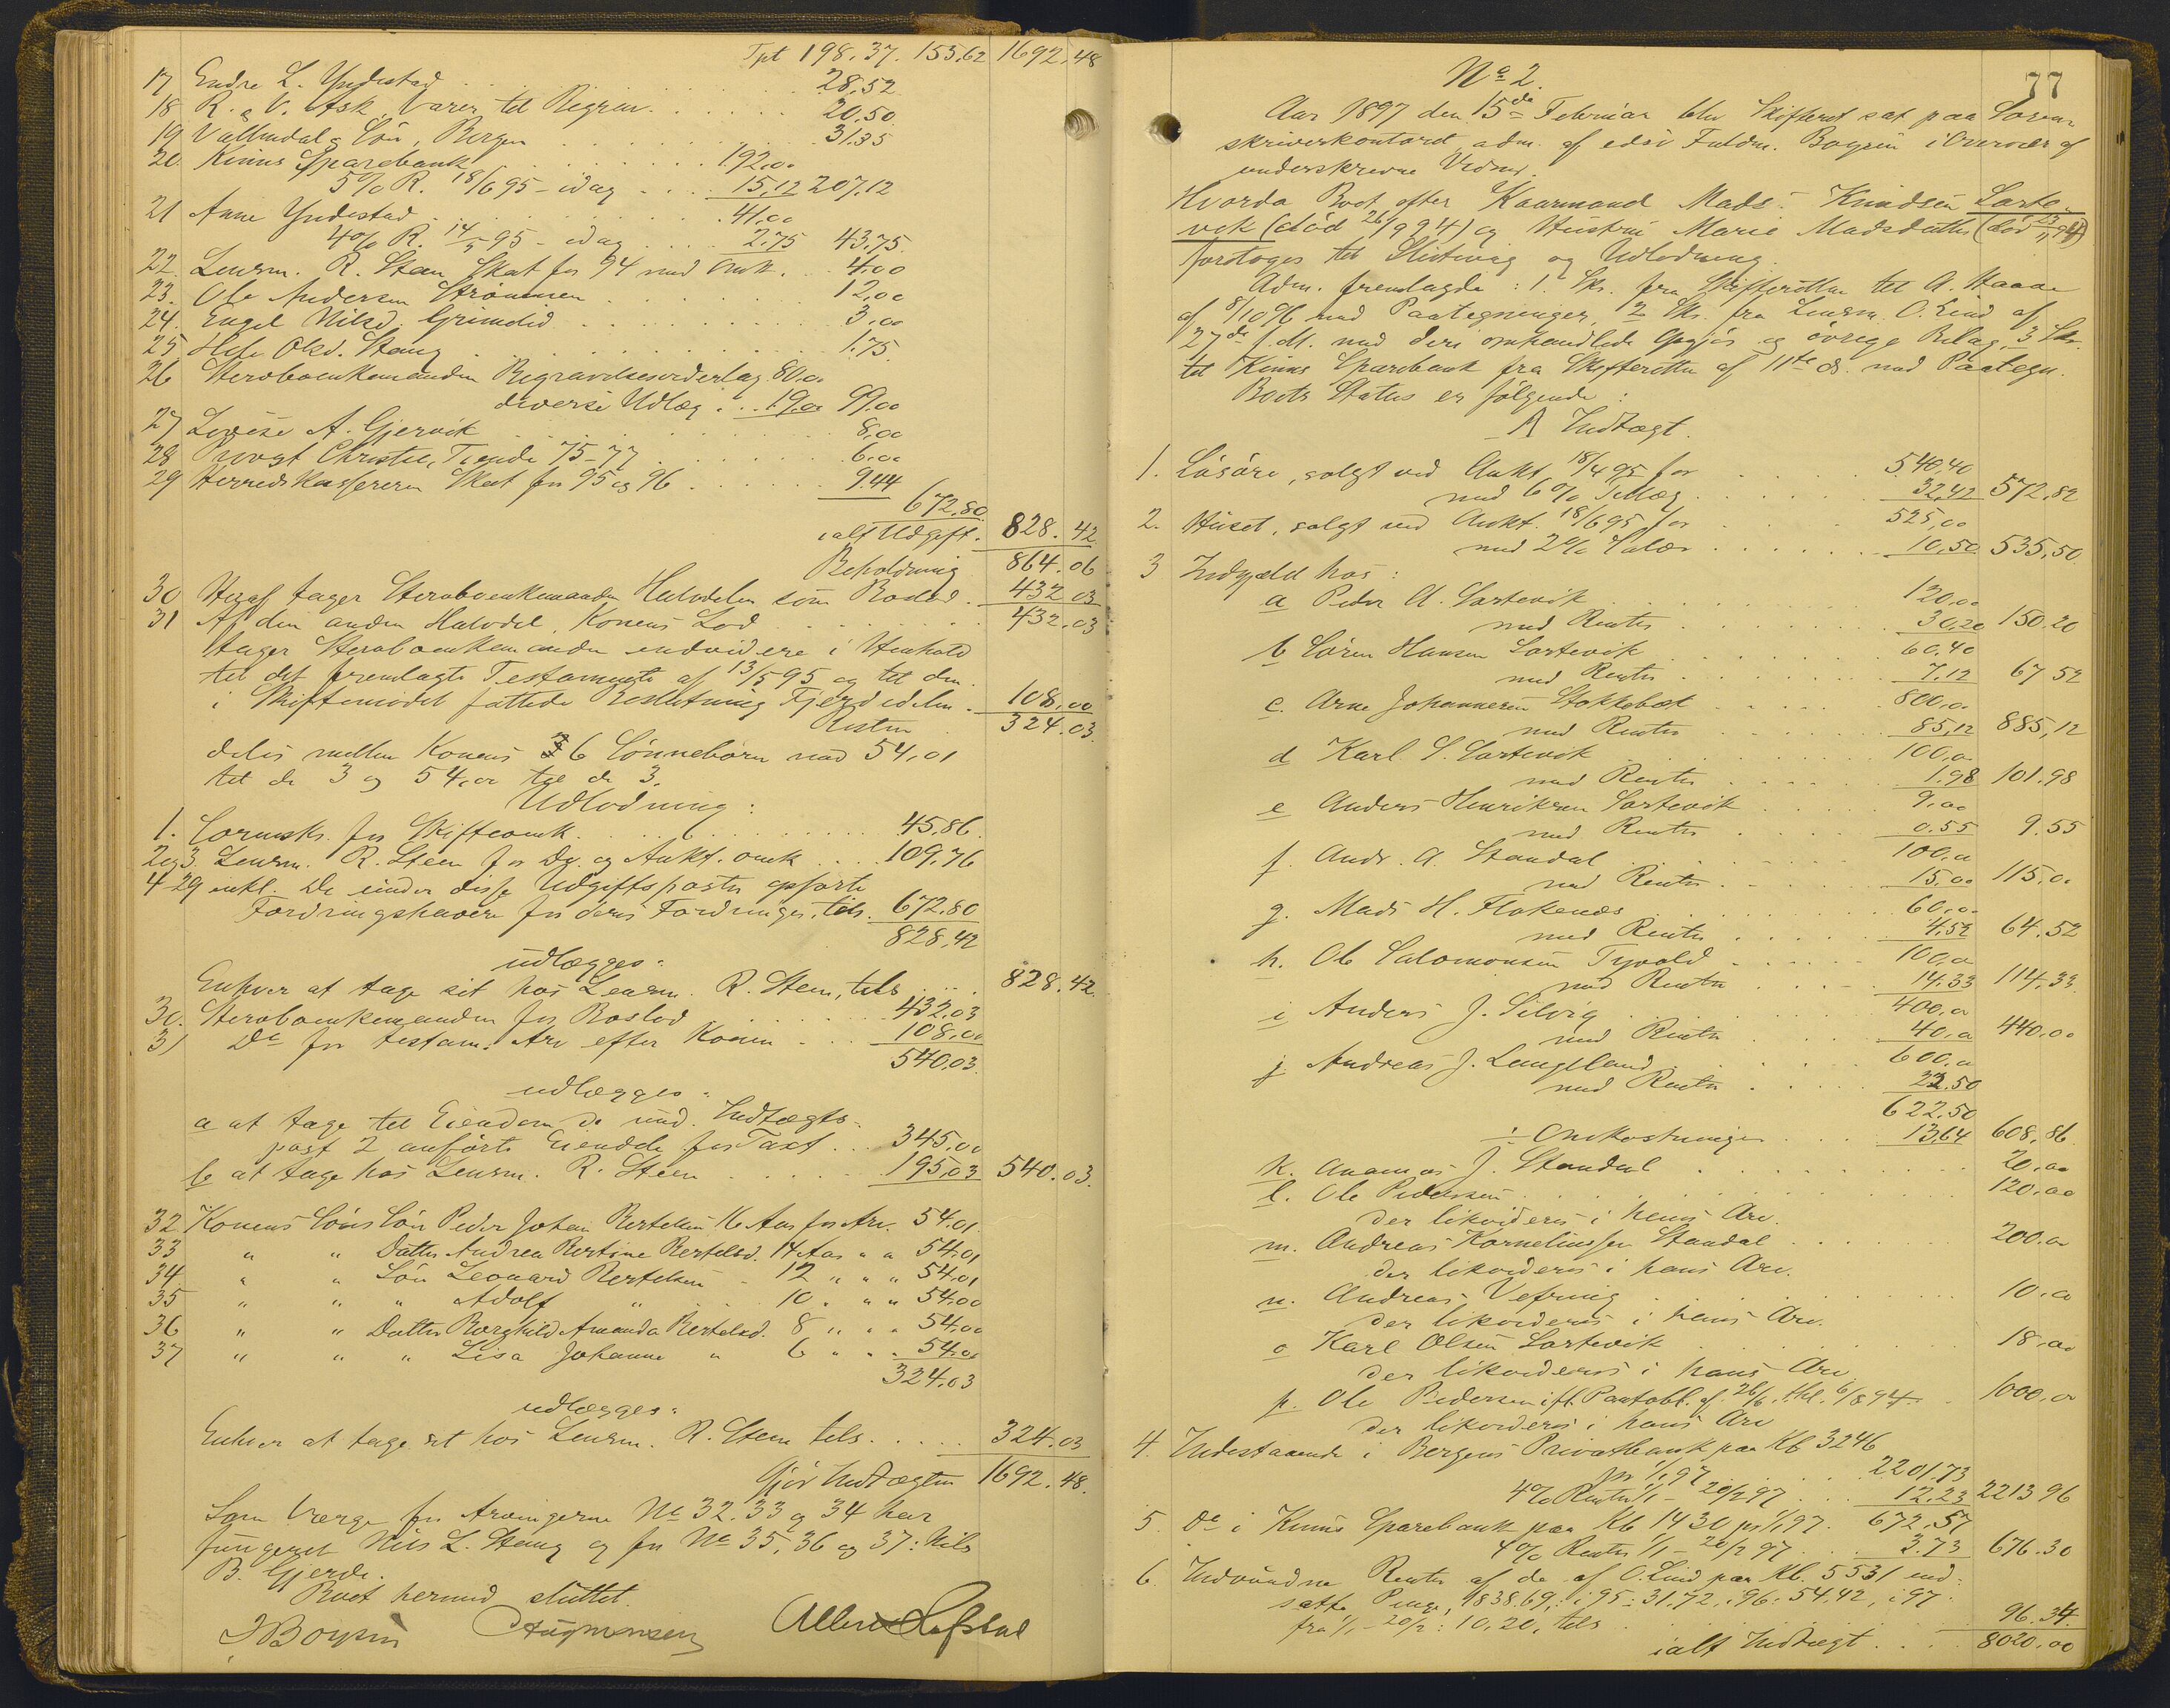 Tpt 198.37. 153,62 1692.48
17 Endre L. Yndestad 28,52
18 R. & V. Ask, Varer til Begrav. 20,50
19 Vallendal & Sön, Bergen 31.35
20 Kinns Sparebank 192,00
5% R. 18/6 95 - idag 15,12 207,12
21 Anne Yndestad 41,00
4% R. 14/5 95 - idag 2.75 43.75
22. Lensm. R. Steen Skat for 94 med Omk. 4.00
23. Ole Andersen Strömmen 12,00
24. Engel Nilsd. Grimelid 3,00
25. Helle Olsd. Stang 1.75
26 Stervboenkemanden Begravelsesvederlag 80,00
diverse Udlæg 19.00 99.00
27 Lovise A. Gjervik 8,00
28 Provst Christie, Tiende 75-77 6.00
29 Herredskassereren Skat for 95 og 96 9.44
672.80
ialt Udgift. 828.42
Beholdning 864.06
30 Heraf tager Stervboenkemanden Halvdelen som Boslod. 432.03
31 Af den anden Halvdel, Konens Lod 432.03
tager Stervboenkemanden endvidere i Henhold
til det fremlagte Testamente af 13/5 95 og til den
i Skiftemödet fattede Beslutning Fjerdedelen 108,00
Resten 324.03.
deles mellem Konens 6 Sönnebörn med 54,01
til de 3 og 54,00 til de 3.
Udlodning:
1. Sorensk. for Skifteomk. 45.86.
2 og 3. Lensm. R. Steen for Do. og Aukt. omk 109.76
4-29 inkl. De under disse Udgiftsposter opförte
Fordringshavere for deres Fordringer, tils. 672.80
828.42
udlægges:
Enhver at tage sit hos Lensm. R. Steen, tils 828.42.
30. Stervboenkemanden for Boslod 432.03
31 Do for testam. Arv efter Konen 108,00
540,03.
udlægges:
a at tage til Eiendom de und. Indtægts-
post 2 anförte Eiendele for Taxt 345.00
b at tage hos Lensm. R. Steen 195,03 540.03.
32. Konens Söns Sön Peder Johan Bertelsen 16 Aar for Arv. 54.01.
33 " " Datter Andrea Bertine Bertelsd. 14 Aar " " 54,01
34. " " Sön Leonard Bertelsen - 12 " " " 54,01
35 " " " Adolf " 10 . " " 54,00
36 " " Datter Borghild Amanda Bertelsd. 8 " " " 54,00
37 " " " Lisa Johanne " 6 " " " 54,00
324,03
udlægges:
Enhver at tage sit hos Lensm. R. Steen tils. 324.03
Gjör Indtægten 1692.48.
Som Værge for Arvingerne No 32. 33 og 34 har
fungeret Nils L. Stang og for No 35, 36 og 37: Nils
B. Gjerde.
Boet hermed sluttet.
J Boysen
77
No 2.
Aar 1897 den 15de Februar blev Skifteret sat paa Soren-
skriverkontoret, adm. af edsv. Fuldm. Boysen i Overvær af
underskrevne Vidner.
Hvorda Boet efter Kaarmand Mads Knudsen Sorte-
vik (död 26/9 94) og Hustru Marie Madsdatter (död 23/11 94)
foretoges til Slutning og Udlodning.
Adm. fremlagde: 1. Skr. fra Skifteretten til A. Haave
af 8/10 96 med Paategninger, 2 Skr. fra Lensm. O. Lind af
27de f. M. med deri omhandlede Opgjör og övrige Bilag, 3 Skr.
til Kinns Sparebank fra Skifteretten af 11te ds. med Paategn.
Boets Status er fölgende:
A Indtægt.
1. Lösöre, solgt ved Aukt. 18/4 95 for 540.40
med 6% Tillæg 32,42 572.82
2. Huset, solgt ved Aukt. 18/6 95 for 525,00
med 2% Salær 10,50 535,50.
3 Indgjæld hos:
a Peder A. Sortevik 120,00
med Renter 30,20 150.20
b Sören Hansen Sortevik 60.40
med Renter 7,12 67.52
c. Arne Johannesen Stokkebæk 800,00
med Renter 85,12 885,12
d Karl S. Sortevik 100,00
med Renter 1.98 101.98
e Anders Henriksen Sortevik 9,00
med Renter 0.55 9.55
f. Andr. A. Standal 100,00
med Renter 15,00 115,00
g. Mads H. Flokenæs 60,00
med Renter 4,52 64.52
h. Ole Salomonsen Tyvold 100,00
med Renter 14,33 114,33.
i Anders J. Silvig 400,00
med Renter 40,00 440,00
j. Andreas J. Langeland 600,00
med Renter 22.50
622.50
÷ Omkostninger 13,64 608,86.
k. J. Standal 20,00
l. Ole Pedersen 120,00
der likvideres i hans Arv.
m. Andreas Korneliussen Standal 200.00
der likvideres i hans Arv.
n. Andreas Vefring 10,00
der likvideres i hans Arv.
o Karl Olsen Sortevik 18,00
der likvideres i hans Arv
p. Ole Pedersen ifl. Pantobl. af 26/6, thl. 6/8 94 1000,00
der likvideres i hans Arv
4. Indestaaende i Bergens Privatbank paa Kb 3246
pr 1/1 97 2201.73
4% Renter 1/1 - 20/2 97 12.23 2213.96
5. Do i Kinns Sparebank paa Kb 1430 pr 1/1 97. 672,57
4% Renter 1/1 - 20/2 97 3.73 676.30
6. Indvundne Renter af de af O. Lind paa Kb. 5531 ind-
satte Penge, 1838.69, i 95: 31.72, i 96: 54.42, i 97
fra 1/1 - 20/2: 10,20, tils 96.34.
ialt Indtægt 8020.00